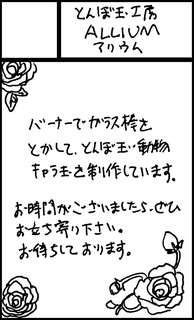 とんぼ玉工房
ALLIUM
アリウム
バーナーでガラス棒を
とかして、とんぼ玉・動物
キャラ玉を制作しています。
お時間がございましたら、ぜひ
お立ち寄り下さい。
お待ちしております。